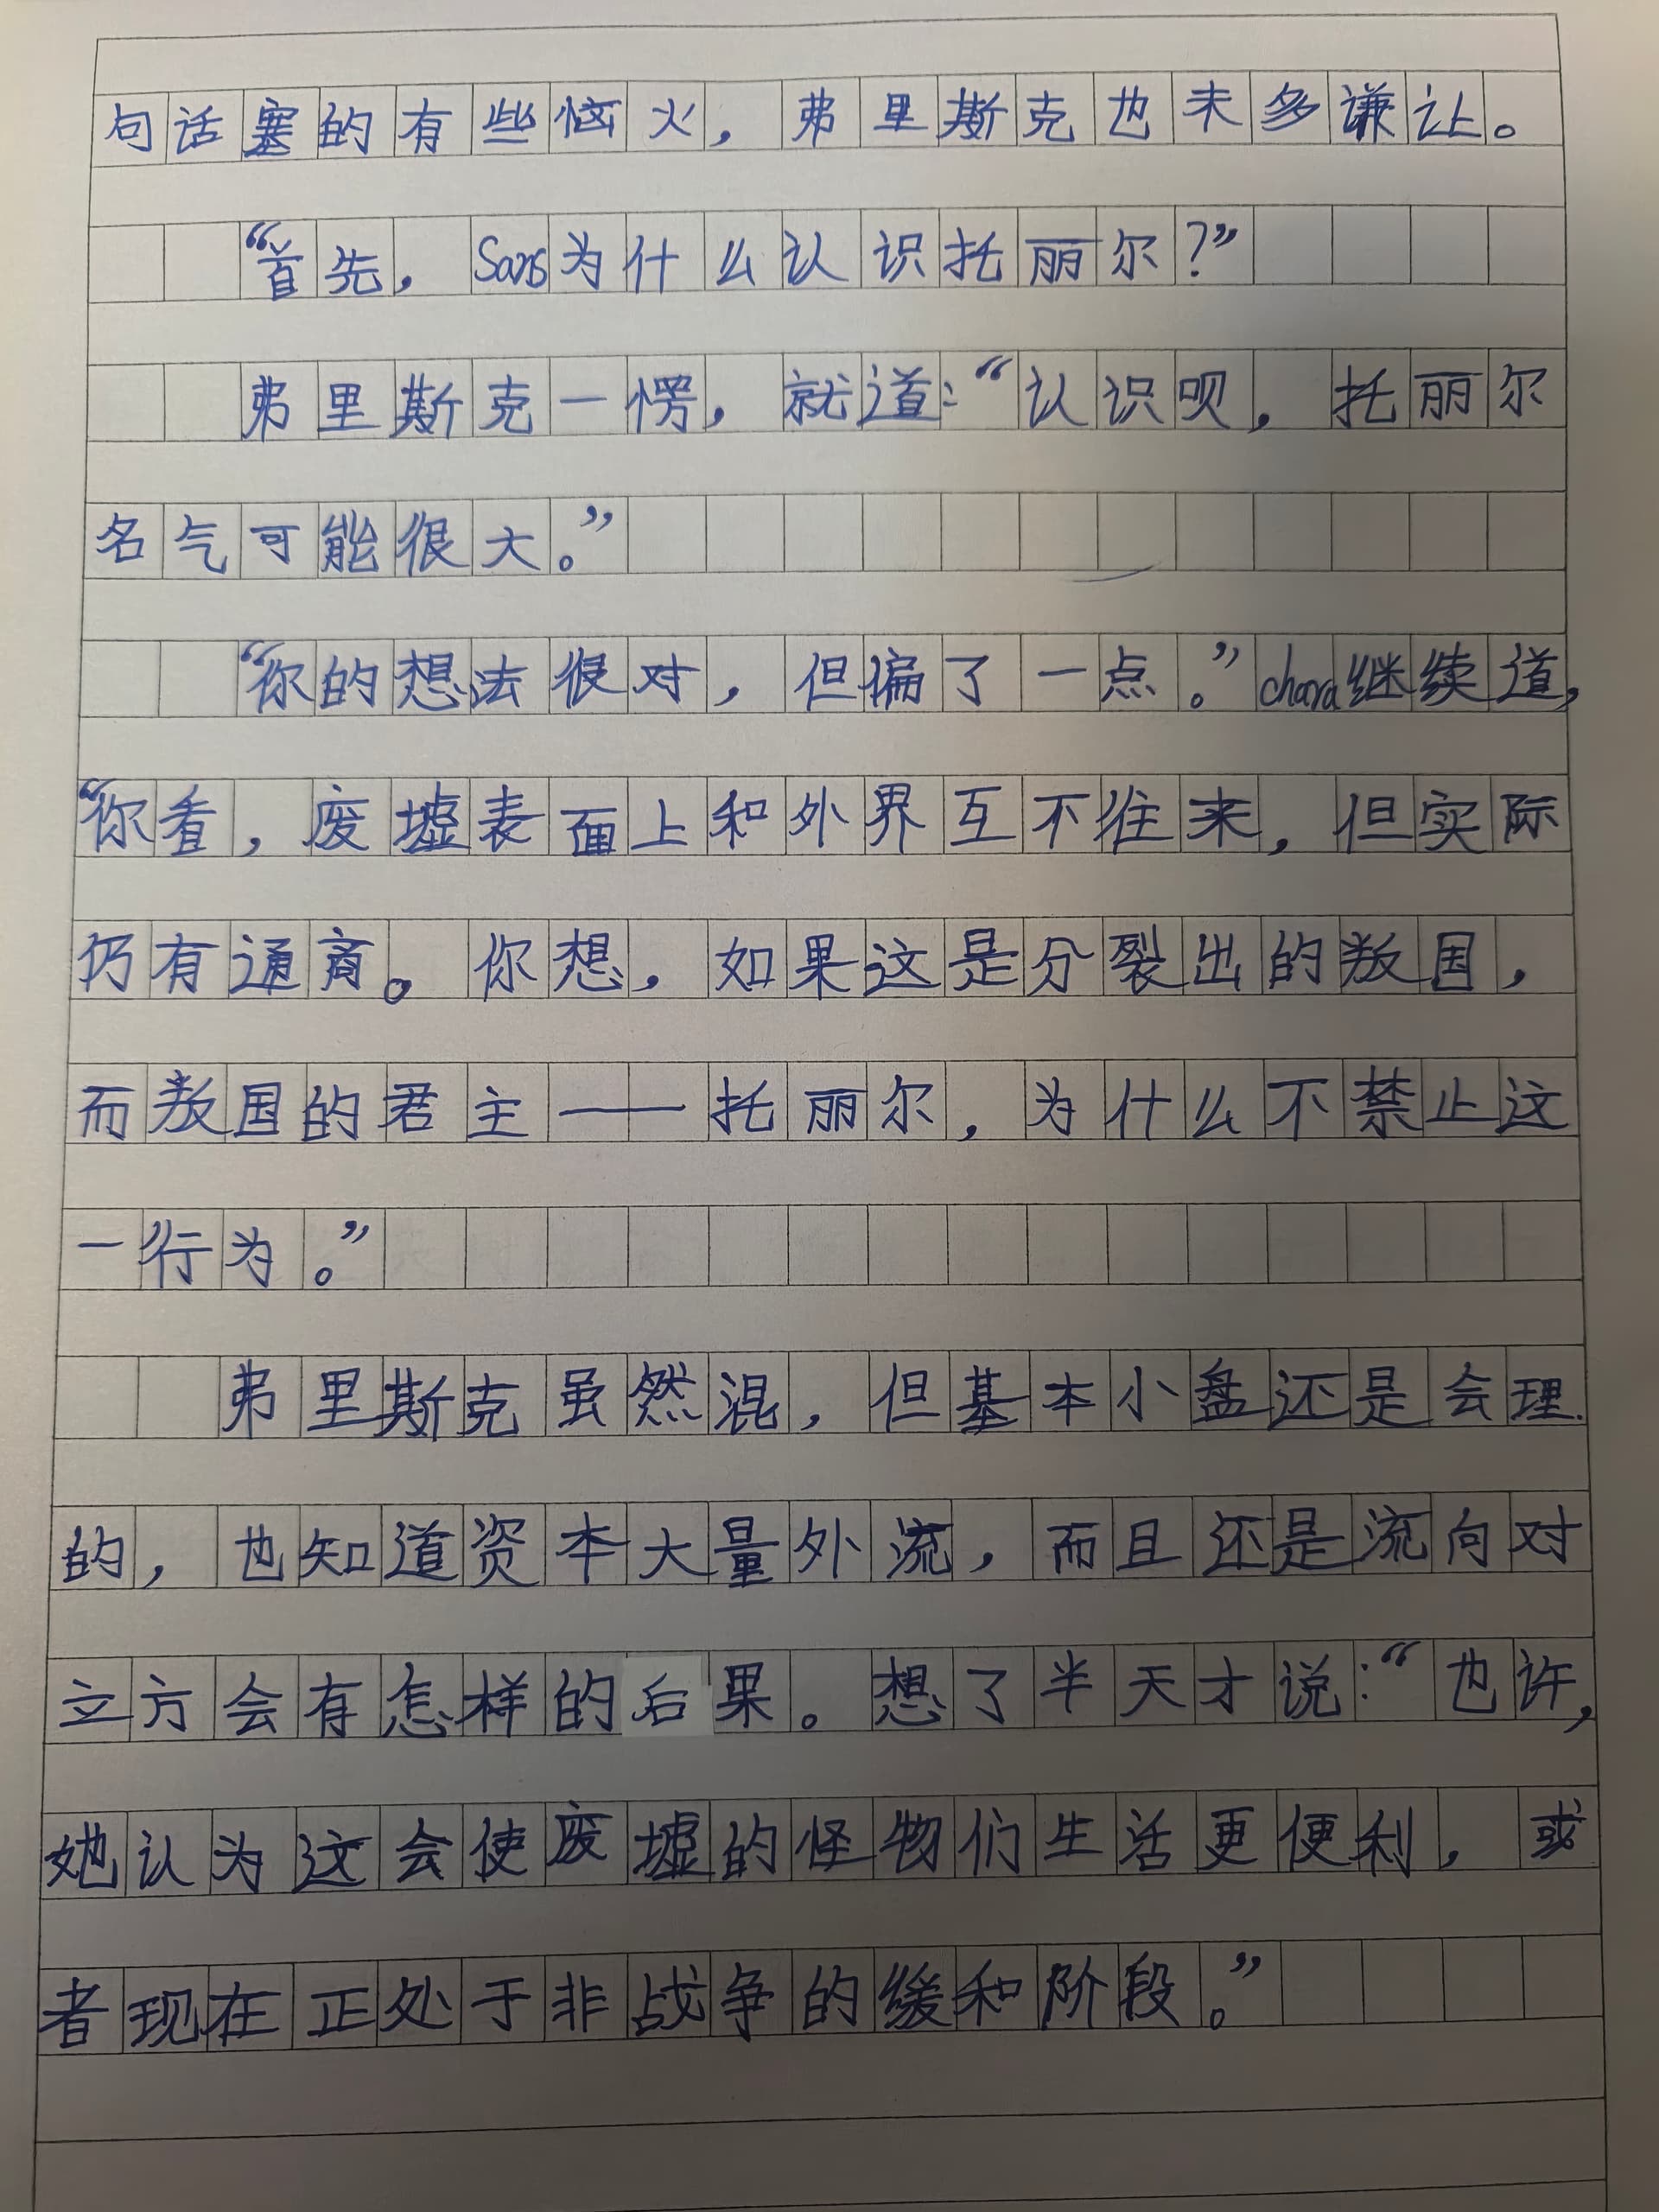 句话塞的有些恼火，弗里斯克也未多谦让。
“首先，Sans为什么认识托丽尔？”
弗里斯克一愣，就道：“认识呗，托丽尔
名气可能很大。”
“你的想法很对，但偏了一点。”chara继续道，
“你看，废墟表面上和外界互不往来，但实际
仍有通商。你想，如果这是分裂出的叛国，
而叛国的君主——托丽尔，为什么不禁止这
一行为。”
弗里斯克虽然混，但基本小盘还是会理
的，也知道资本大量外流，而且还是流向对
立方会有怎样的后果。想了半天才说：“也许，
她认为这会使废墟的怪物们生活更便利，或
者现在正处于非战争的缓和阶段。”